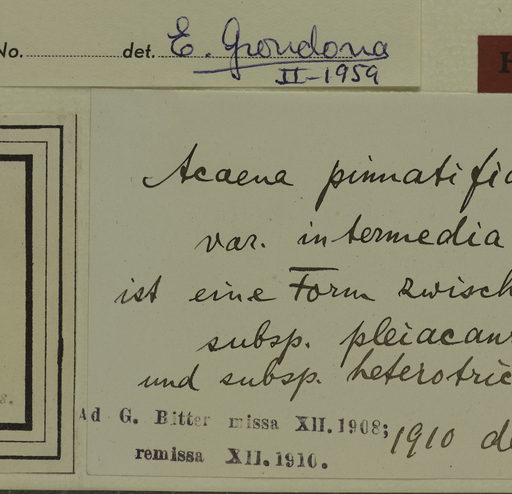 No. det. E. Grondona
II-1959
H
Acaena pinnatific
var. intermedia
ist eine Form zwisch
subsp. pleiacan
und subsp. heterotric
Ad G. Bitter missa XII.1908;
remissa XII.1910.
1910 de
8.